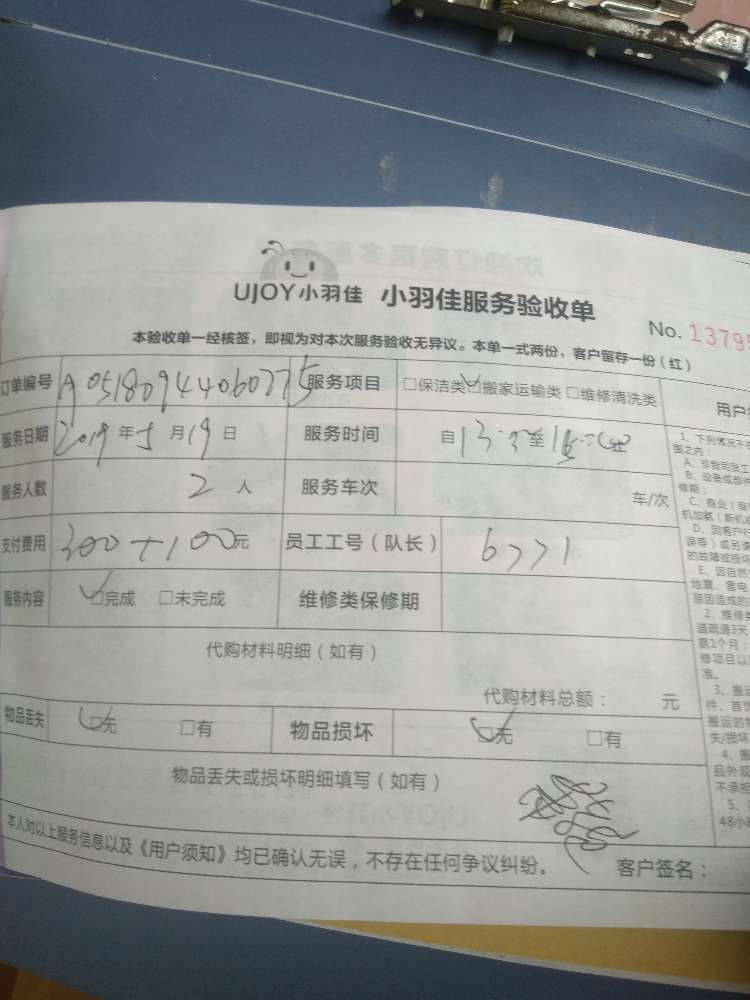 UJOY小羽佳 小羽佳服务验收单
No. 13795
本验收单一经核签，即视为对本次服务验收无异议。本单一式两份，客户留存一份（红）
订单编号 A05180944060275 服务项目 □保洁类 □搬家运输类 □维修清洗类
服务日期 2019年5月19日 服务时间 自13:  至
服务人数 2人 服务车次 车/次
支付费用 300+100元 员工工号（队长） 6771
服务内容 □完成 □未完成 维修类保修期
代购材料明细（如有）
代购材料总额： 元
物品丢失 □无 □有 物品损坏 □无 □有
物品丢失或损坏明细填写（如有）
本人对以上服务信息以及《用户须知》均已确认无误，不存在任何争议纠纷。 客户签名：
用户
1、下列情况不在
围之内：
A、非我司员工
B、设备或部件
修期；
C、商业（商
机加氨（新机
D、因客户
误等）或另请
的故障或损坏
E、因自然
地震、雷电
原因造成的
2、维修类
道疏通3天
氨1个月；
修项目以
准。
3、搬运
件、首饰
搬运的物
失/损坏
4、搬
品外观
不承担
5、
48小时